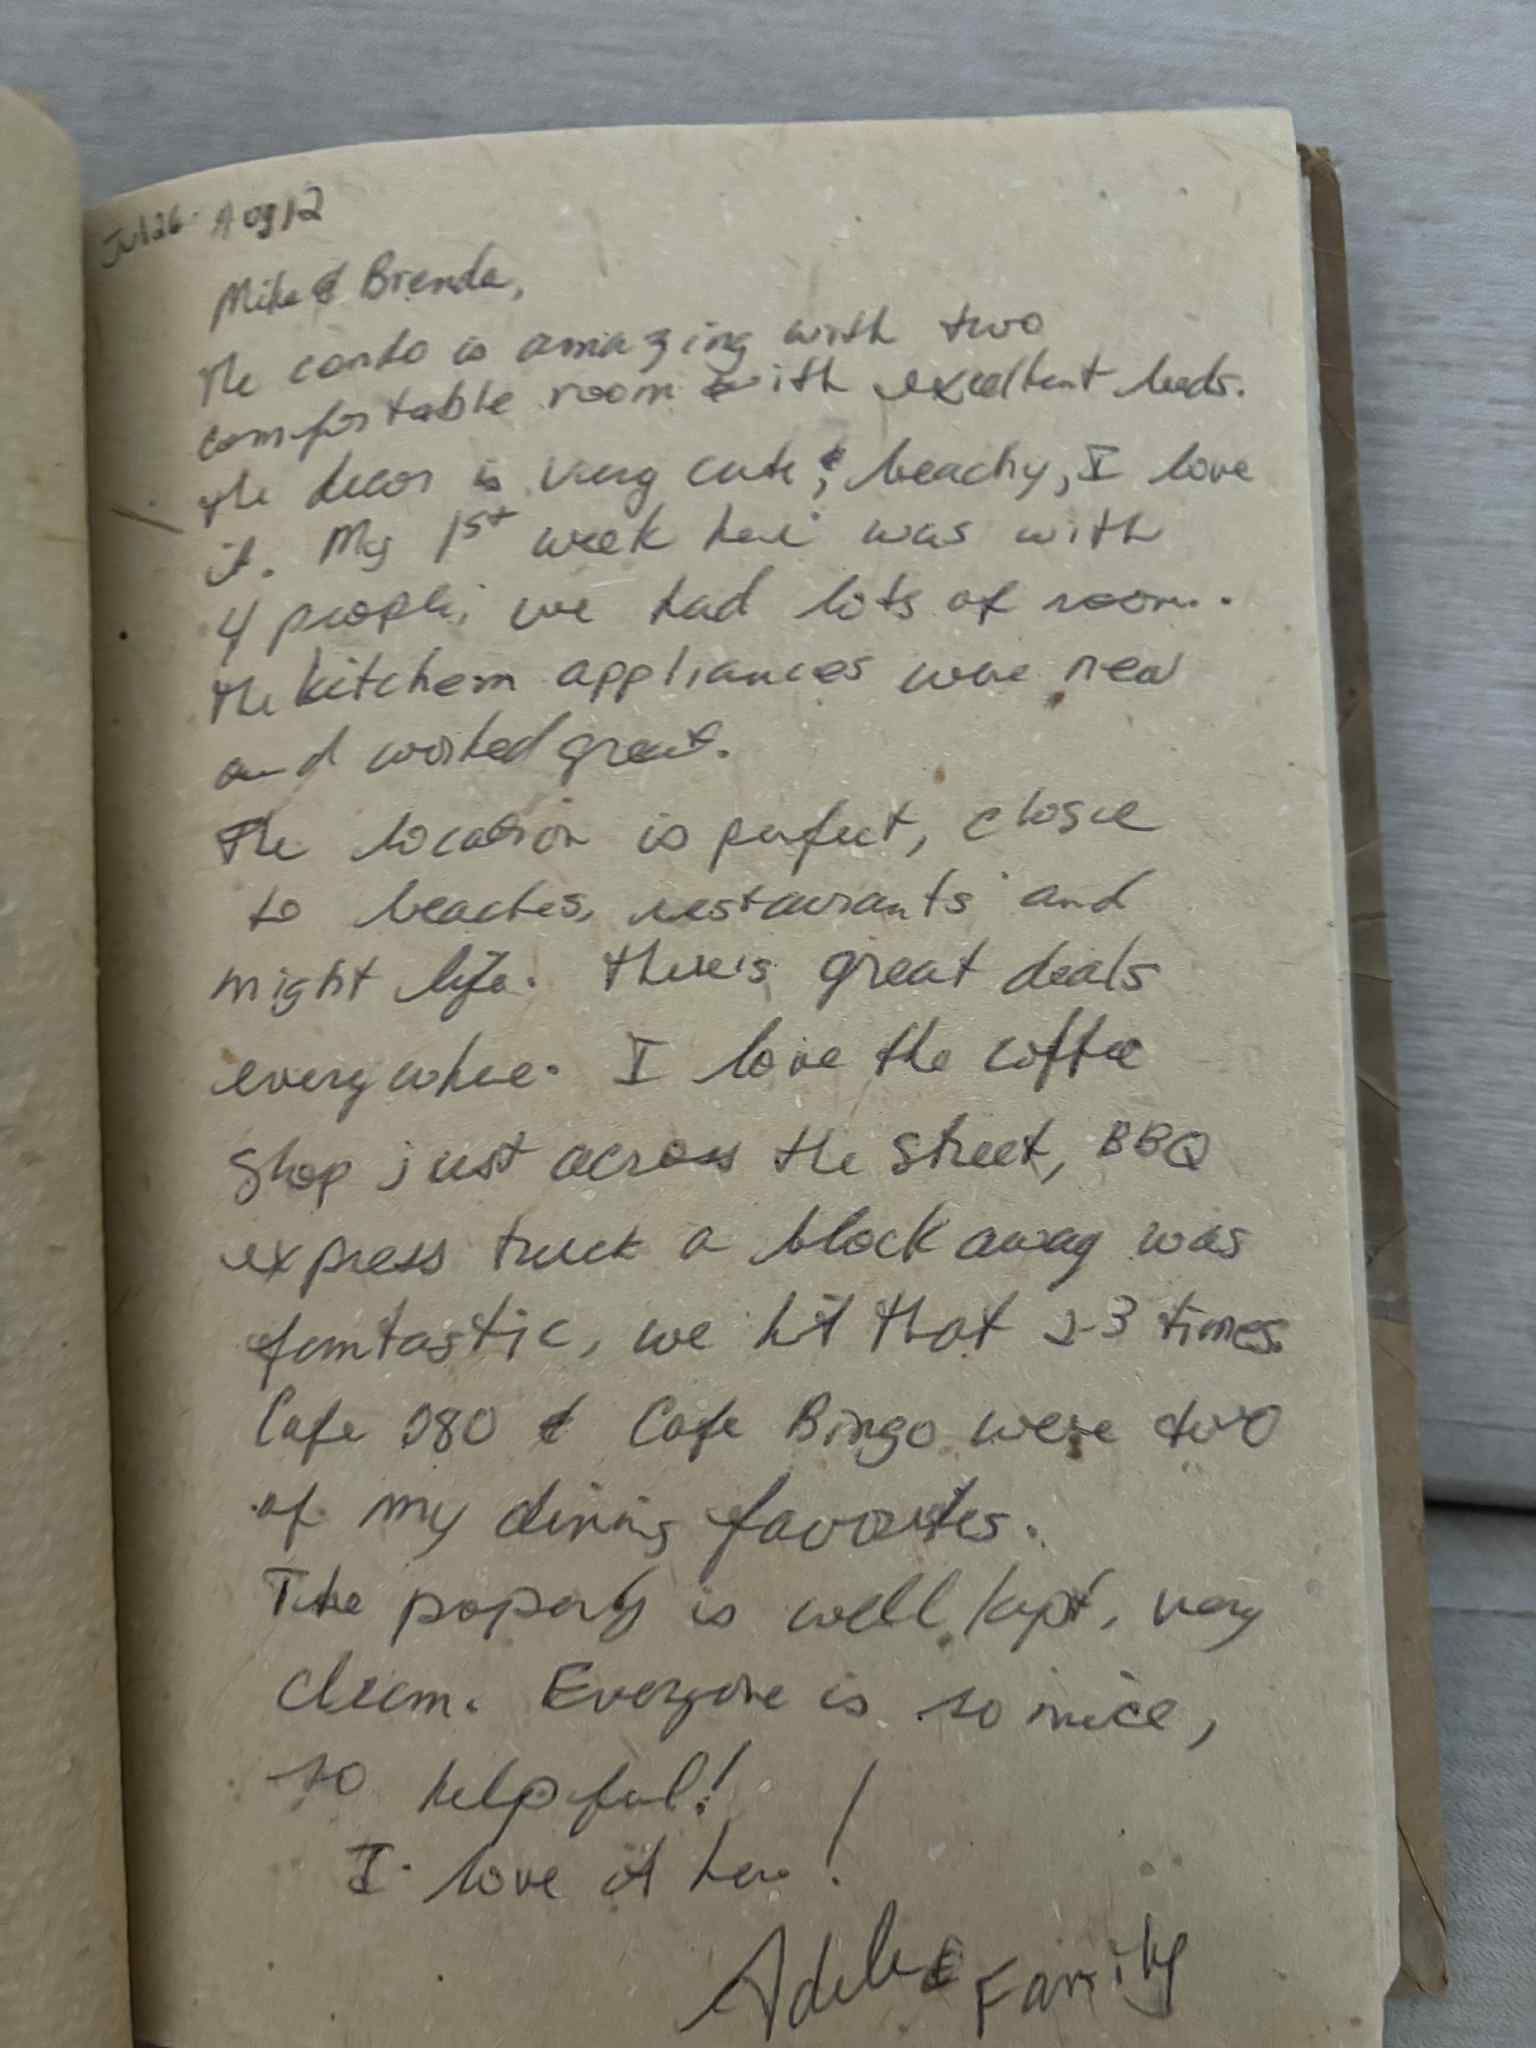 Jul 26 - Aug 12
Mike & Brenda,
The condo is amazing with two
comfortable room with excellent beds.
The decor is very cute & beachy, I love
it. My 1st week here was with
4 people, we had lots of room.
The kitchen appliances were new
and worked great.
The location is perfect, close
to beaches, restaurants and
night life. There's great deals
everywhere. I love the coffee
shop just across the street, BBQ
express truck a block away was
fantastic, we hit that 2-3 times.
Cafe 280 & Cafe Bingo were two
of my dining favorites.
The property is well kept, very
clean. Everyone is so nice,
so helpful!
I love it here!
& Family